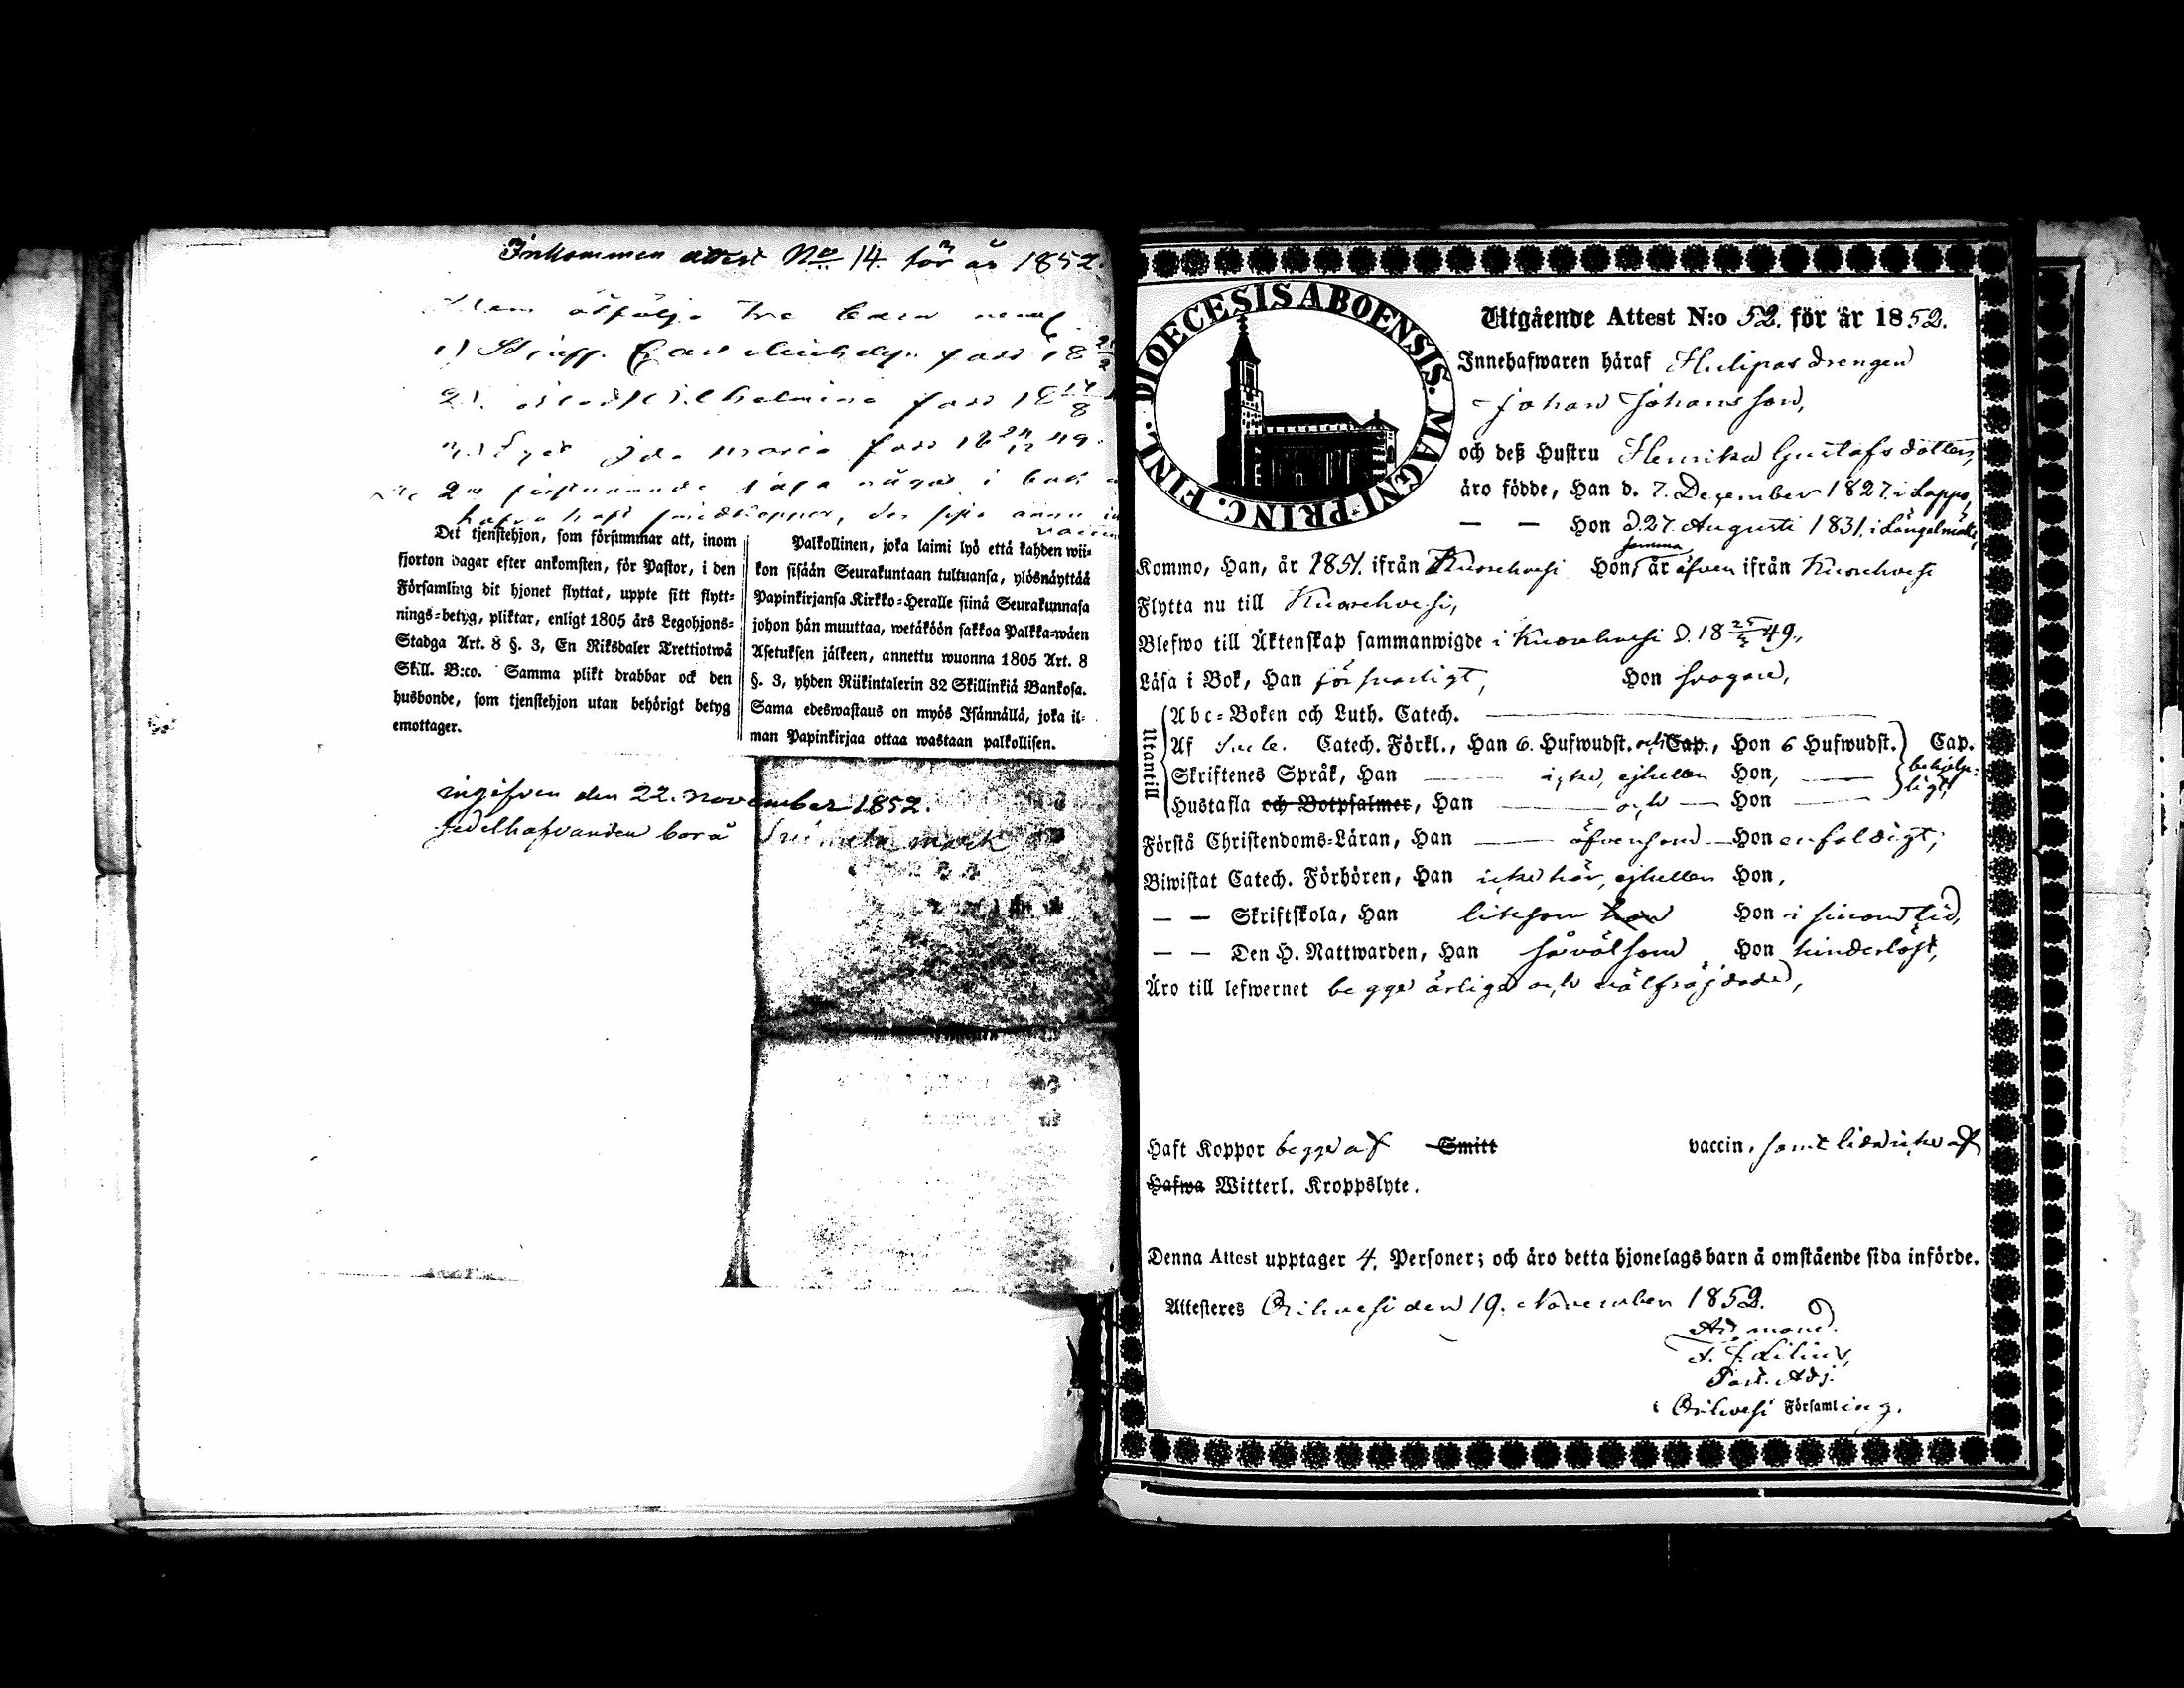 Inkommen attest No 14. för år 1852.
Dem åtfölja tre barn neml.
1) Styff. Carl Michelss. född 18
2). Wilhelmina född 18
3.) Ida Maria född 18 24/12 49.
De 2ne förstnämnde läsa något i bok
hafva haft smittkoppor, den sista ännu
Det tjenstehjon, som försummar att, inom
fjorton dagar efter ankomsten, för Pastor, i den
Församling dit hjonet flyttat, uppte sitt flytt-
nings-betyg, pliktar, enligt 1805 års Legohjons-
Stadga Art. 8 §. 3, En Riksdaler Trettiotwå
Skill. B:co. Samma plikt drabbar ock den
husbonde, som tjenstehjon utan behörigt betyg
emottager.
Palkollinen, joka laimi lyö että kahden wii-
kon sisään Seurakuntaan tultuansa, ylösnäyttää
Papinkirjansa Kirkko-Heralle siinä Seurakunnasa
johon hän muuttaa, wetäköön sakkoa Palkka-wäen
Asetuksen jälkeen, annettu wuonna 1805 Art. 8
§. 3, yhden Riikintalerin 32 Skillinkiä Bankosa.
Sama edeswastaus on myös Isännällä, joka il-
man Papinkirjaa ottaa wastaan palkollisen.
ingifven den 22. November 1852.
sedelhafvanden bor å mark
DIOECESIS ABOENSIS. MAGNI-PRINC. FINL.
Utgående Attest N:o 52. för år 1852.
Innehafwaren häraf Hulipas drengen
Johan Johansson,
och deß Hustru Henrika Gustafsdotter,
äro födde, Han d. 7. December 1827. i Lappo,
— — Hon d. 27. Augusti 1831. i Längelmäki,
Kommo, Han, år 1851. ifrån Kuorehvesi Hon, samma år äfven ifrån Kuorehvesi
Flytta nu till Kuorehvesi,
Blefwo till Äktenskap sammanwigde i Kuorehvesi d. 18 25/3 49.,
Läsa i Bok, Han försvarligt, Hon svagare,
Utantill
Abc-Boken och Luth. Catech. ———
Af Sveb. Catech. Förkl., Han 6. Hufwudst. och Cap., Hon 6 Hufwudst. Cap.
Skriftenes Språk, Han — icke, ejheller Hon, — behjelp-
Hustafla och Botpsalmer, Han — och — Hon — ligt,
Första Christendoms-Läran, Han — äfvensom — Hon enfaldigt;
Biwistat Catech. Förhören, Han icke här, ejheller Hon,
— — Skriftskola, Han liksom Hon i sinom tid,
— — Den H. Nattwarden, Han såväl som Hon hinderlöst,
Äro till lefwernet begge ärliga och välfräjdade,
Haft Koppor begge af Smitt vaccin, samt lida icke af
Hafwa Witterl. Kroppslyte.
Denna Attest upptager 4. Personer; och äro detta hjonelags barn å omstående sida införde.
Attesteres Orihvesi den 19. November 1852.
Ad mand.
A. F. Lilius,
Past. Adj.
i Orihvesi Församling.